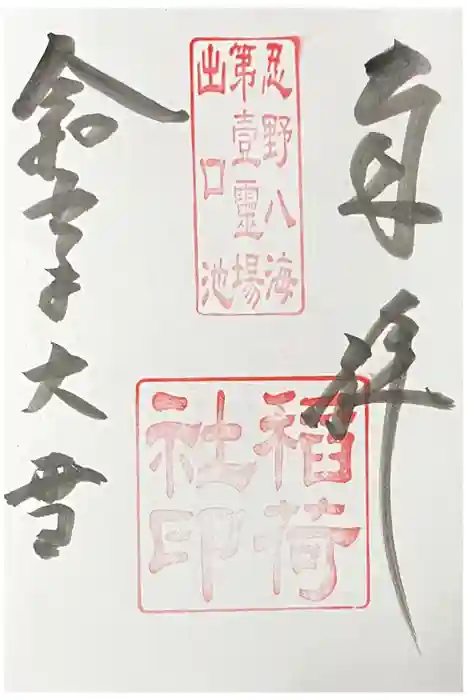 拝
忍野八海
第壹靈場
出口池
稲荷
社印
大雪